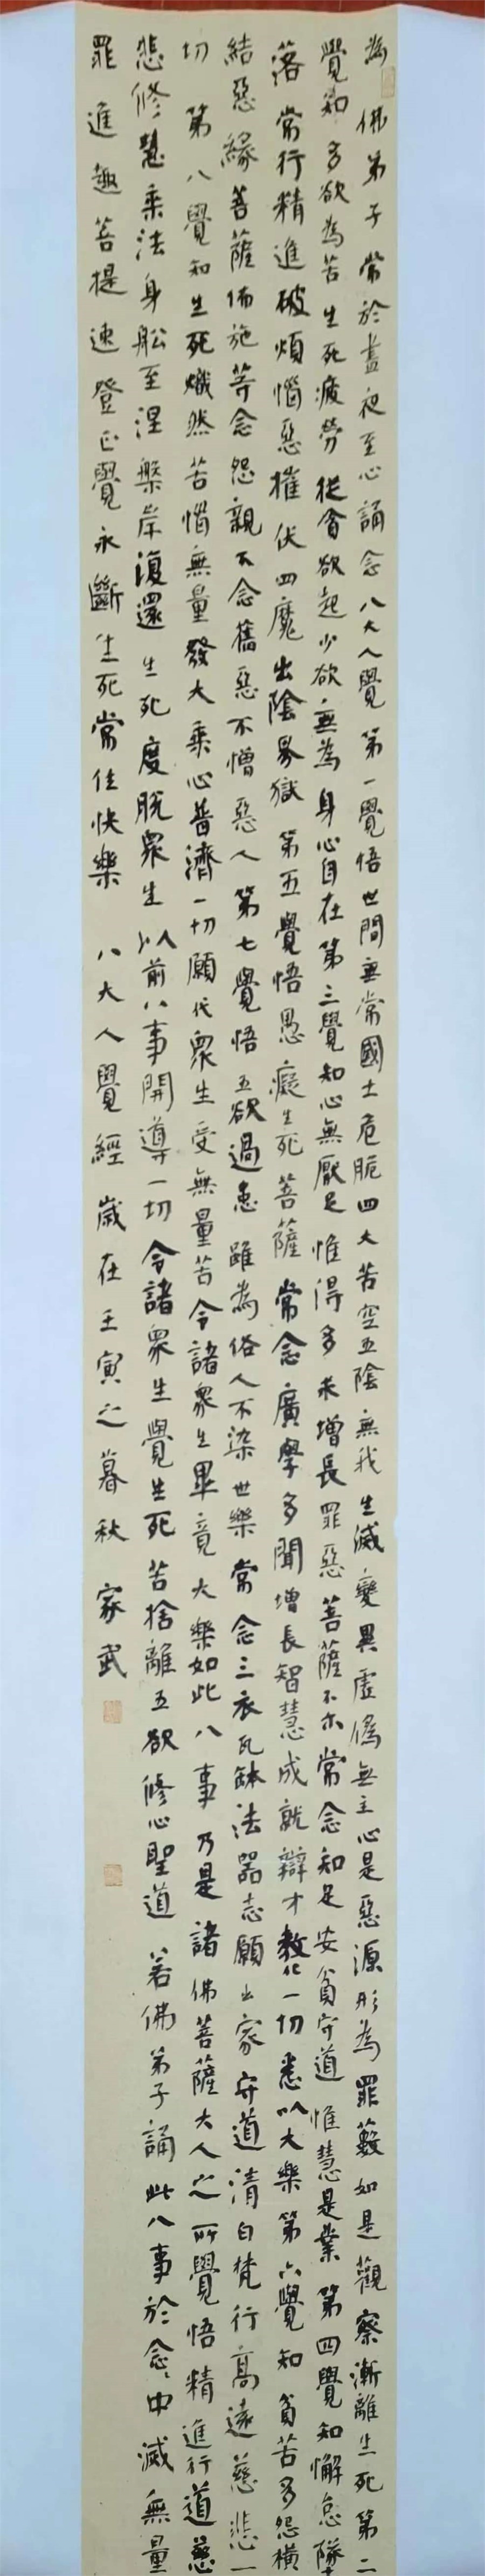 為佛弟子常於晝夜至心誦念八大人覺第一覺悟世間無常國土危脆四大苦空五陰無我生滅變異虛偽無主心是惡源形為罪藪如是觀察漸離生死第二
覺知多欲為苦生死疲勞從貪欲起少欲無為身心自在第三覺知心無厭足惟得多求增長罪惡菩薩不尒常念知足安貧守道惟慧是業第四覺知懈怠墜
落常行精進破煩惱惡摧伏四魔出陰界獄第五覺悟愚癡生死菩薩常念廣學多聞增長智慧成就辯才教化一切悉以大樂第六覺知貧苦多怨橫
結惡緣菩薩佈施等念怨親不念舊惡不憎惡人第七覺悟五欲過患雖為俗人不染世樂常念三衣瓦缽法器志願出家守道清白梵行高遠慈悲一
切第八覺知生死熾然苦惱無量發大乘心普濟一切願代眾生受無量苦令諸眾生畢竟大樂如此八事乃是諸佛菩薩大人之所覺悟精進行道慈
悲修慧乘法身船至涅槃岸復還生死度脫眾生以前八事開導一切令諸眾生覺生死苦捨離五欲修心聖道若佛弟子誦此八事於念念中滅無量
罪進趣菩提速登正覺永斷生死常住快樂 八大人覺經 歲在壬寅之暮秋 家武